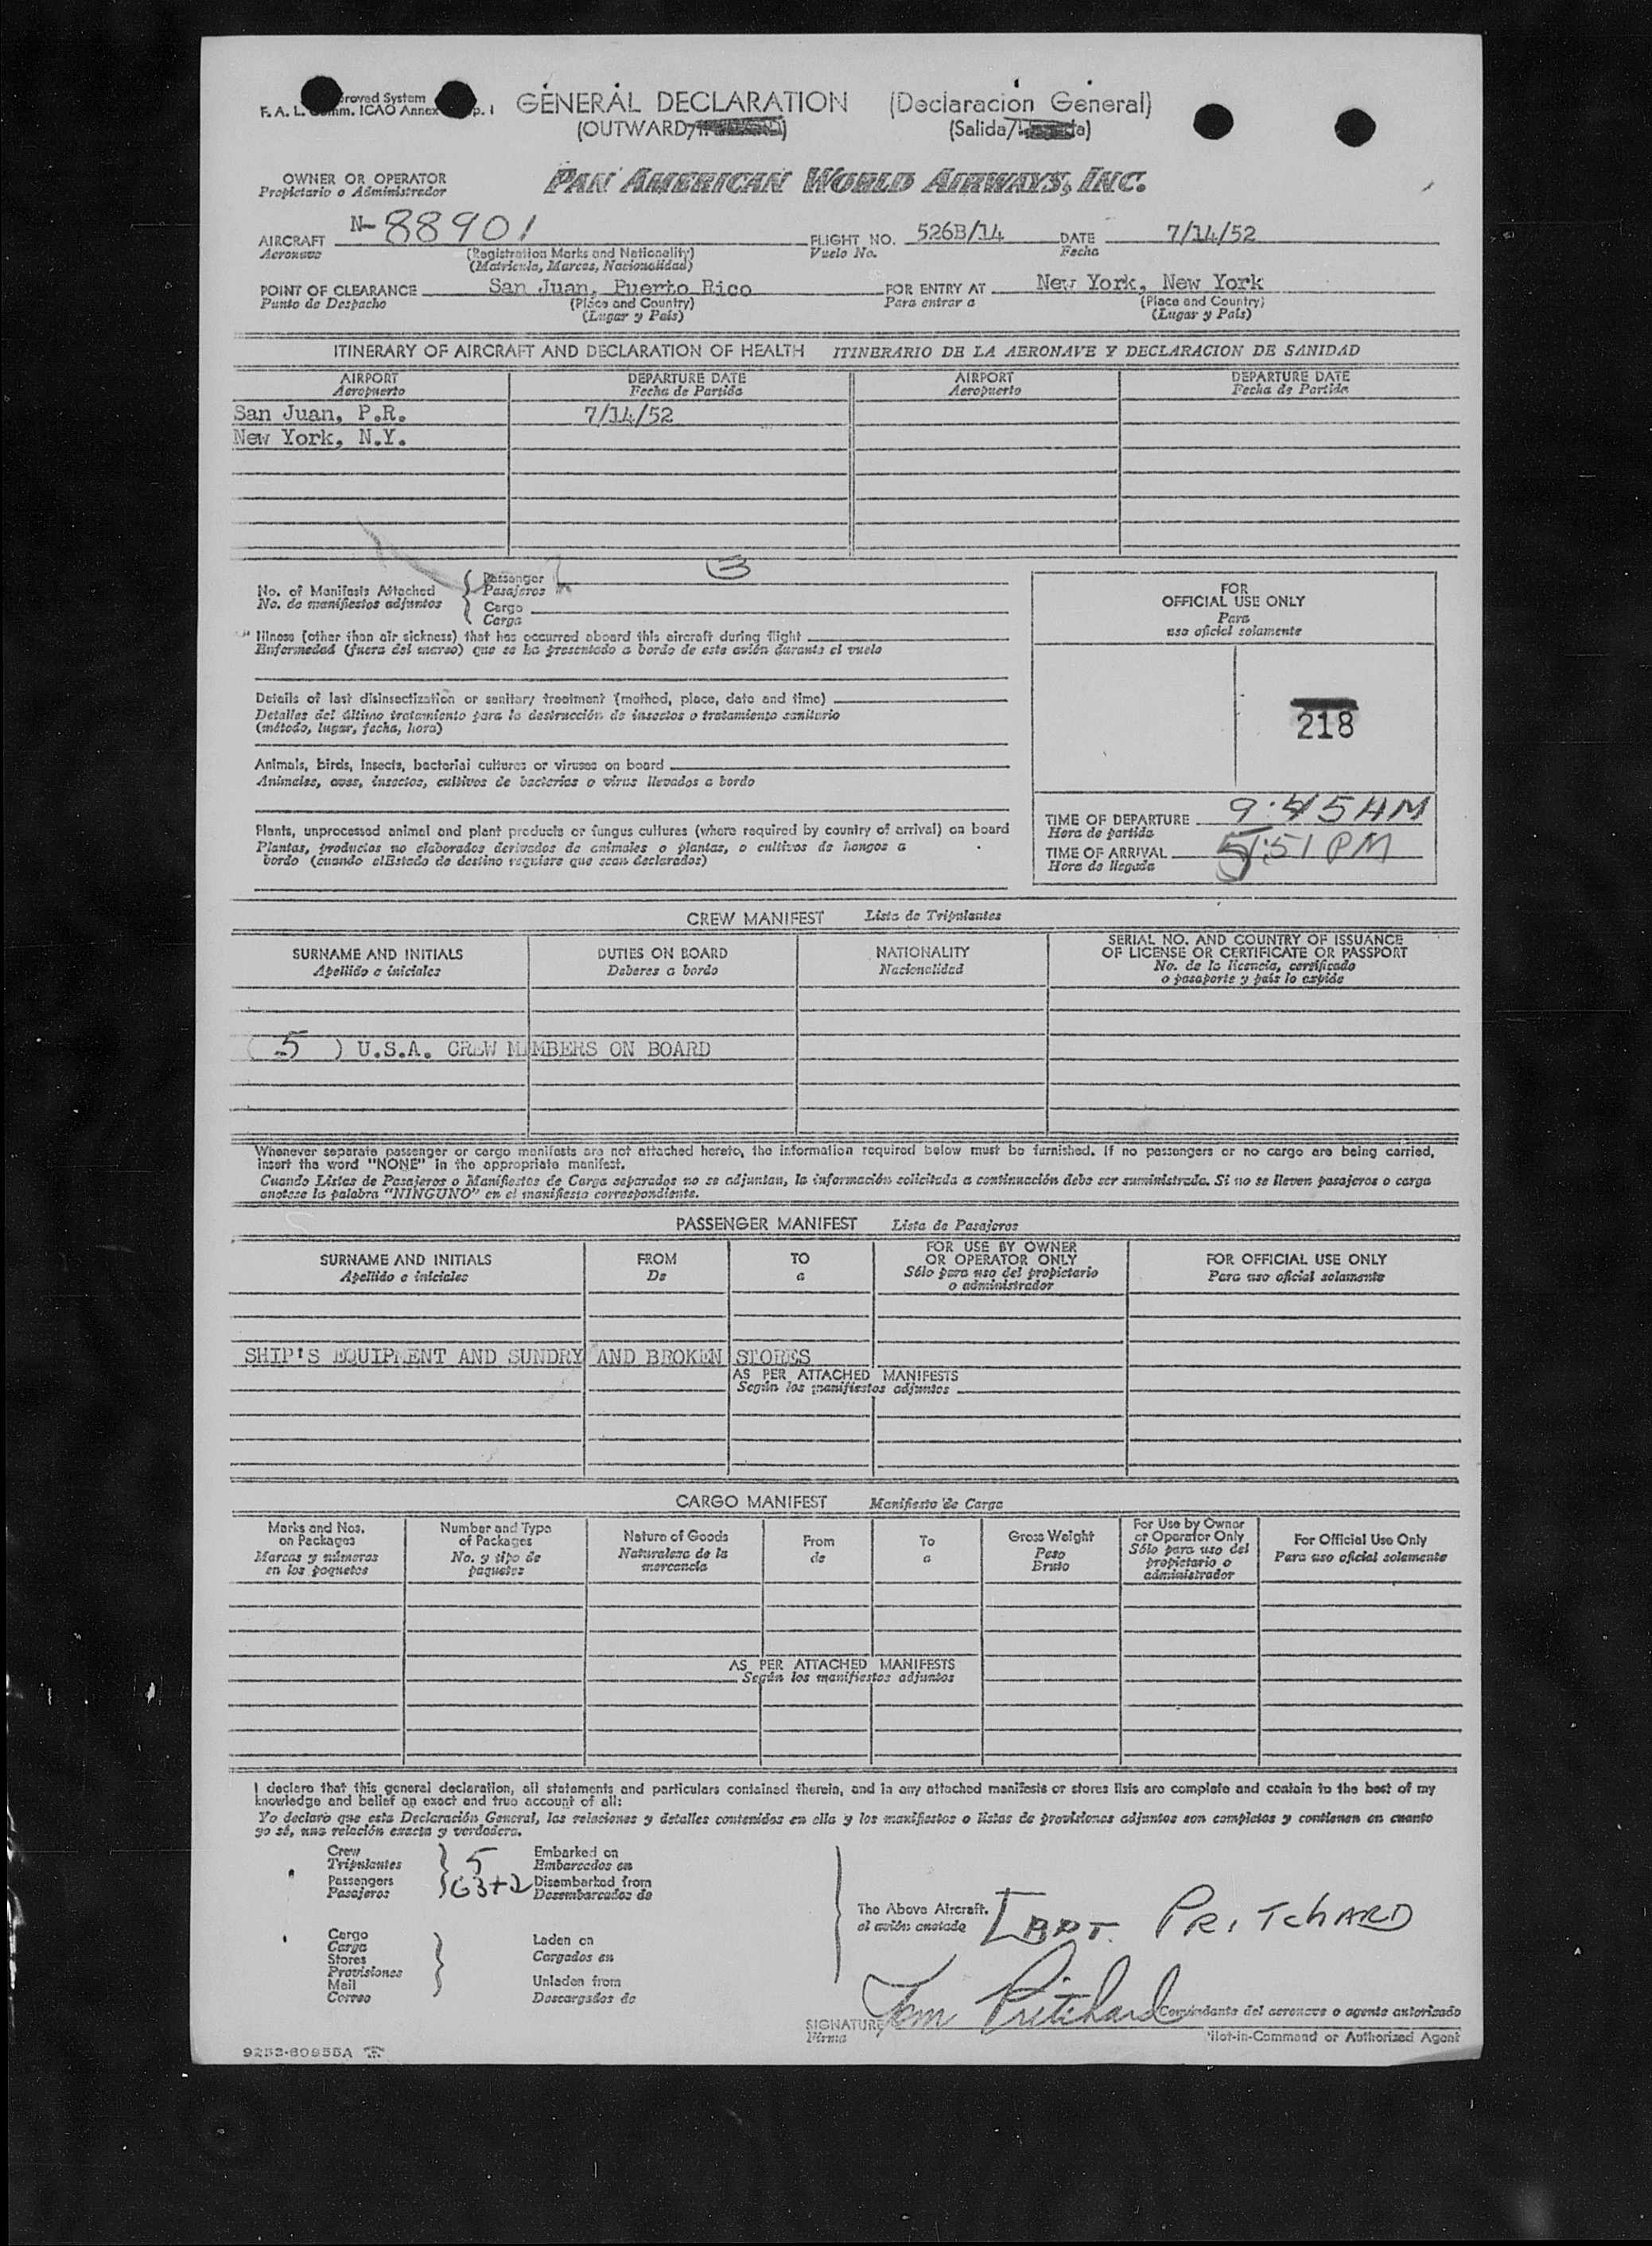 GENERAL DECLARATION (Declaración General)
F. A. L. ICAO Annex
(OUTWARD/ (Salida/
OWNER OR OPERATOR
Propietario o Administrador
PAN AMERICAN WORLD AIRWAYS, INC.
AIRCRAFT N-88901 FLIGHT NO. 526B/14 DATE 7/14/52
Aeronave (Registration Marks and Nationality) Vuelo No. Fecha
(Matricula, Marcas, Nacionalidad)
POINT OF CLEARANCE San Juan, Puerto Rico FOR ENTRY AT New York, New York
Punto de Despacho (Place and Country) Para entrar a (Place and Country)
(Lugar y País) (Lugar y País)
ITINERARY OF AIRCRAFT AND DECLARATION OF HEALTH ITINERARIO DE LA AERONAVE Y DECLARACION DE SANIDAD
AIRPORT DEPARTURE DATE AIRPORT DEPARTURE DATE
Aeropuerto Fecha de Partida Aeropuerto Fecha de Partida
San Juan, P.R. 7/14/52
New York, N.Y.
No. of Manifests Attached
No. de manifiestos adjuntos
Passenger 3
Pasajeros
Cargo
Carga
Illness (other than air sickness) that has occurred aboard this aircraft during flight
Enfermedad (fuera del mareo) que se ha presentado a bordo de este avión durante el vuelo
Details of last disinsectization or sanitary treatment (method, place, date and time)
Detalles del último tratamiento para la destrucción de insectos o tratamiento sanitario
(método, lugar, fecha, hora)
Animals, birds, insects, bacterial cultures or viruses on board
Animales, aves, insectos, cultivos de bacterias o virus llevados a bordo
Plants, unprocessed animal and plant products or fungus cultures (where required by country of arrival) on board
Plantas, productos no elaborados derivados de animales o plantas, o cultivos de hongos a
bordo (cuando elEstado de destino requiere que sean declarados)
FOR
OFFICIAL USE ONLY
Para
uso oficial solamente
218
TIME OF DEPARTURE 9:45 AM
Hora de partida
TIME OF ARRIVAL 5:51 PM
Hora de llegada
CREW MANIFEST Lista de Tripulantes
SURNAME AND INITIALS DUTIES ON BOARD NATIONALITY SERIAL NO. AND COUNTRY OF ISSUANCE
Apellido e iniciales Deberes a bordo Nacionalidad OF LICENSE OR CERTIFICATE OR PASSPORT
No. de la licencia, certificado
o pasaporte y país lo expide
( 5 ) U.S.A. CREW MEMBERS ON BOARD
Whenever separate passenger or cargo manifests are not attached hereto, the information required below must be furnished. If no passengers or no cargo are being carried,
insert the word "NONE" in the appropriate manifest.
Cuando Listas de Pasajeros o Manifiestos de Carga separados no se adjuntan, la información solicitada a continuación debe ser suministrada. Si no se lleven pasajeros o carga
anotese la palabra "NINGUNO" en el manifiesto correspondiente.
PASSENGER MANIFEST Lista de Pasajeros
SURNAME AND INITIALS FROM TO FOR USE BY OWNER OR OPERATOR ONLY FOR OFFICIAL USE ONLY
Apellido e iniciales De a Sólo para uso del propietario o administrador Para uso oficial solamente
SHIP'S EQUIPMENT AND SUNDRY AND BROKEN STORES
AS PER ATTACHED MANIFESTS
Según los manifiestos adjuntos
CARGO MANIFEST Manifiesto de Carga
Marks and Nos. on Packages Number and Type of Packages Nature of Goods From To Gross Weight For Use by Owner or Operator Only For Official Use Only
Marcas y números en los paquetes No. y tipo de paquetes Naturaleza de la mercancía de a Peso Bruto Sólo para uso del propietario o administrador Para uso oficial solamente
AS PER ATTACHED MANIFESTS
Según los manifiestos adjuntos
I declare that this general declaration, all statements and particulars contained therein, and in any attached manifests or stores lists are complete and contain to the best of my
knowledge and belief an exact and true account of all:
Yo declaro que esta Declaración General, las relaciones y detalles contenidos en ella y los manifiestos o listas de provisiones adjuntos son completos y contienen en cuanto
yo sé, una relación exacta y verdadera.
Crew 5 Embarked on
Tripulantes Embarcados en
Passengers 63+2 Disembarked from
Pasajeros Desembarcados de
Cargo
Carga Laden on
Stores Cargados en
Provisiones
Mail Unladen from
Correo Descargados de
The Above Aircraft.
el avión anotado
PRITCHARD
SIGNATURE Tom Pritchard Comandante del aeronave o agente autorizado
Firma Pilot-in-Command or Authorized Agent